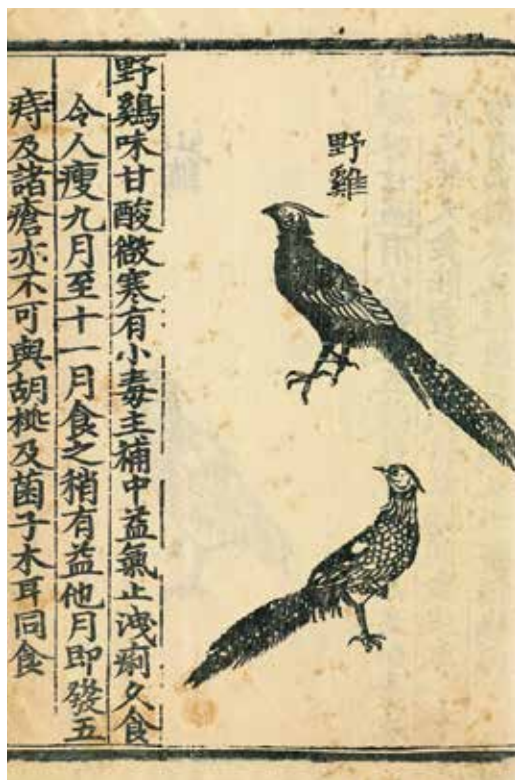 野雞
野鷄味甘酸微寒有小毒主補中益氣止洩痢久食
令人瘦九月至十一月食之稍有益他月即發五
痔及諸瘡亦不可與胡桃及菌子木耳同食